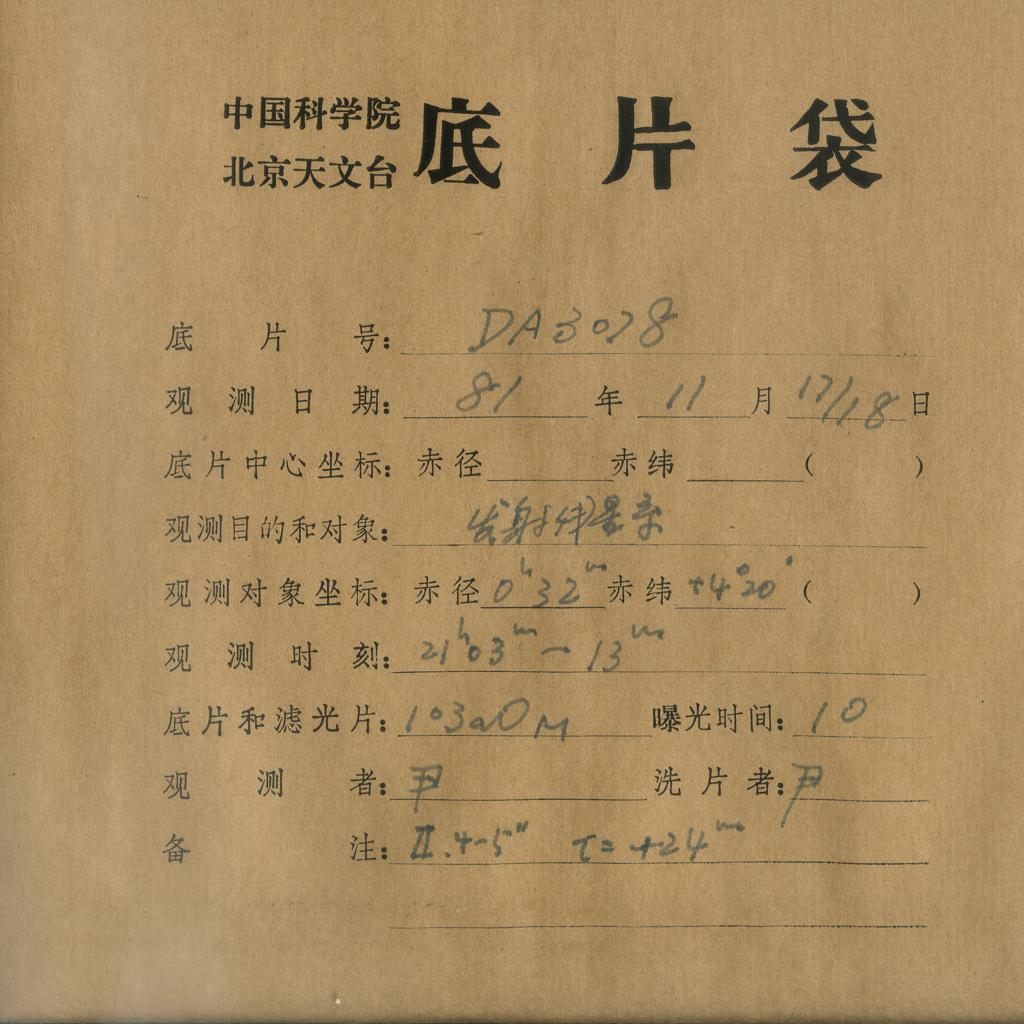 中国科学院
北京天文台
底片袋
底片号: DA3078
观测日期: 81 年 11 月 17/18 日
底片中心坐标: 赤径 赤纬 ( )
观测目的和对象: 发射
观测对象坐标: 赤径 0ʰ32ᵐ 赤纬 +4°20′ ( )
观测时刻: 21ʰ03ᵐ — 13ᵐ
底片和滤光片: 103aO M 曝光时间: 10
观测者: 尹 洗片者: 尹
备注: II.4-5" τ= +24ᵐ